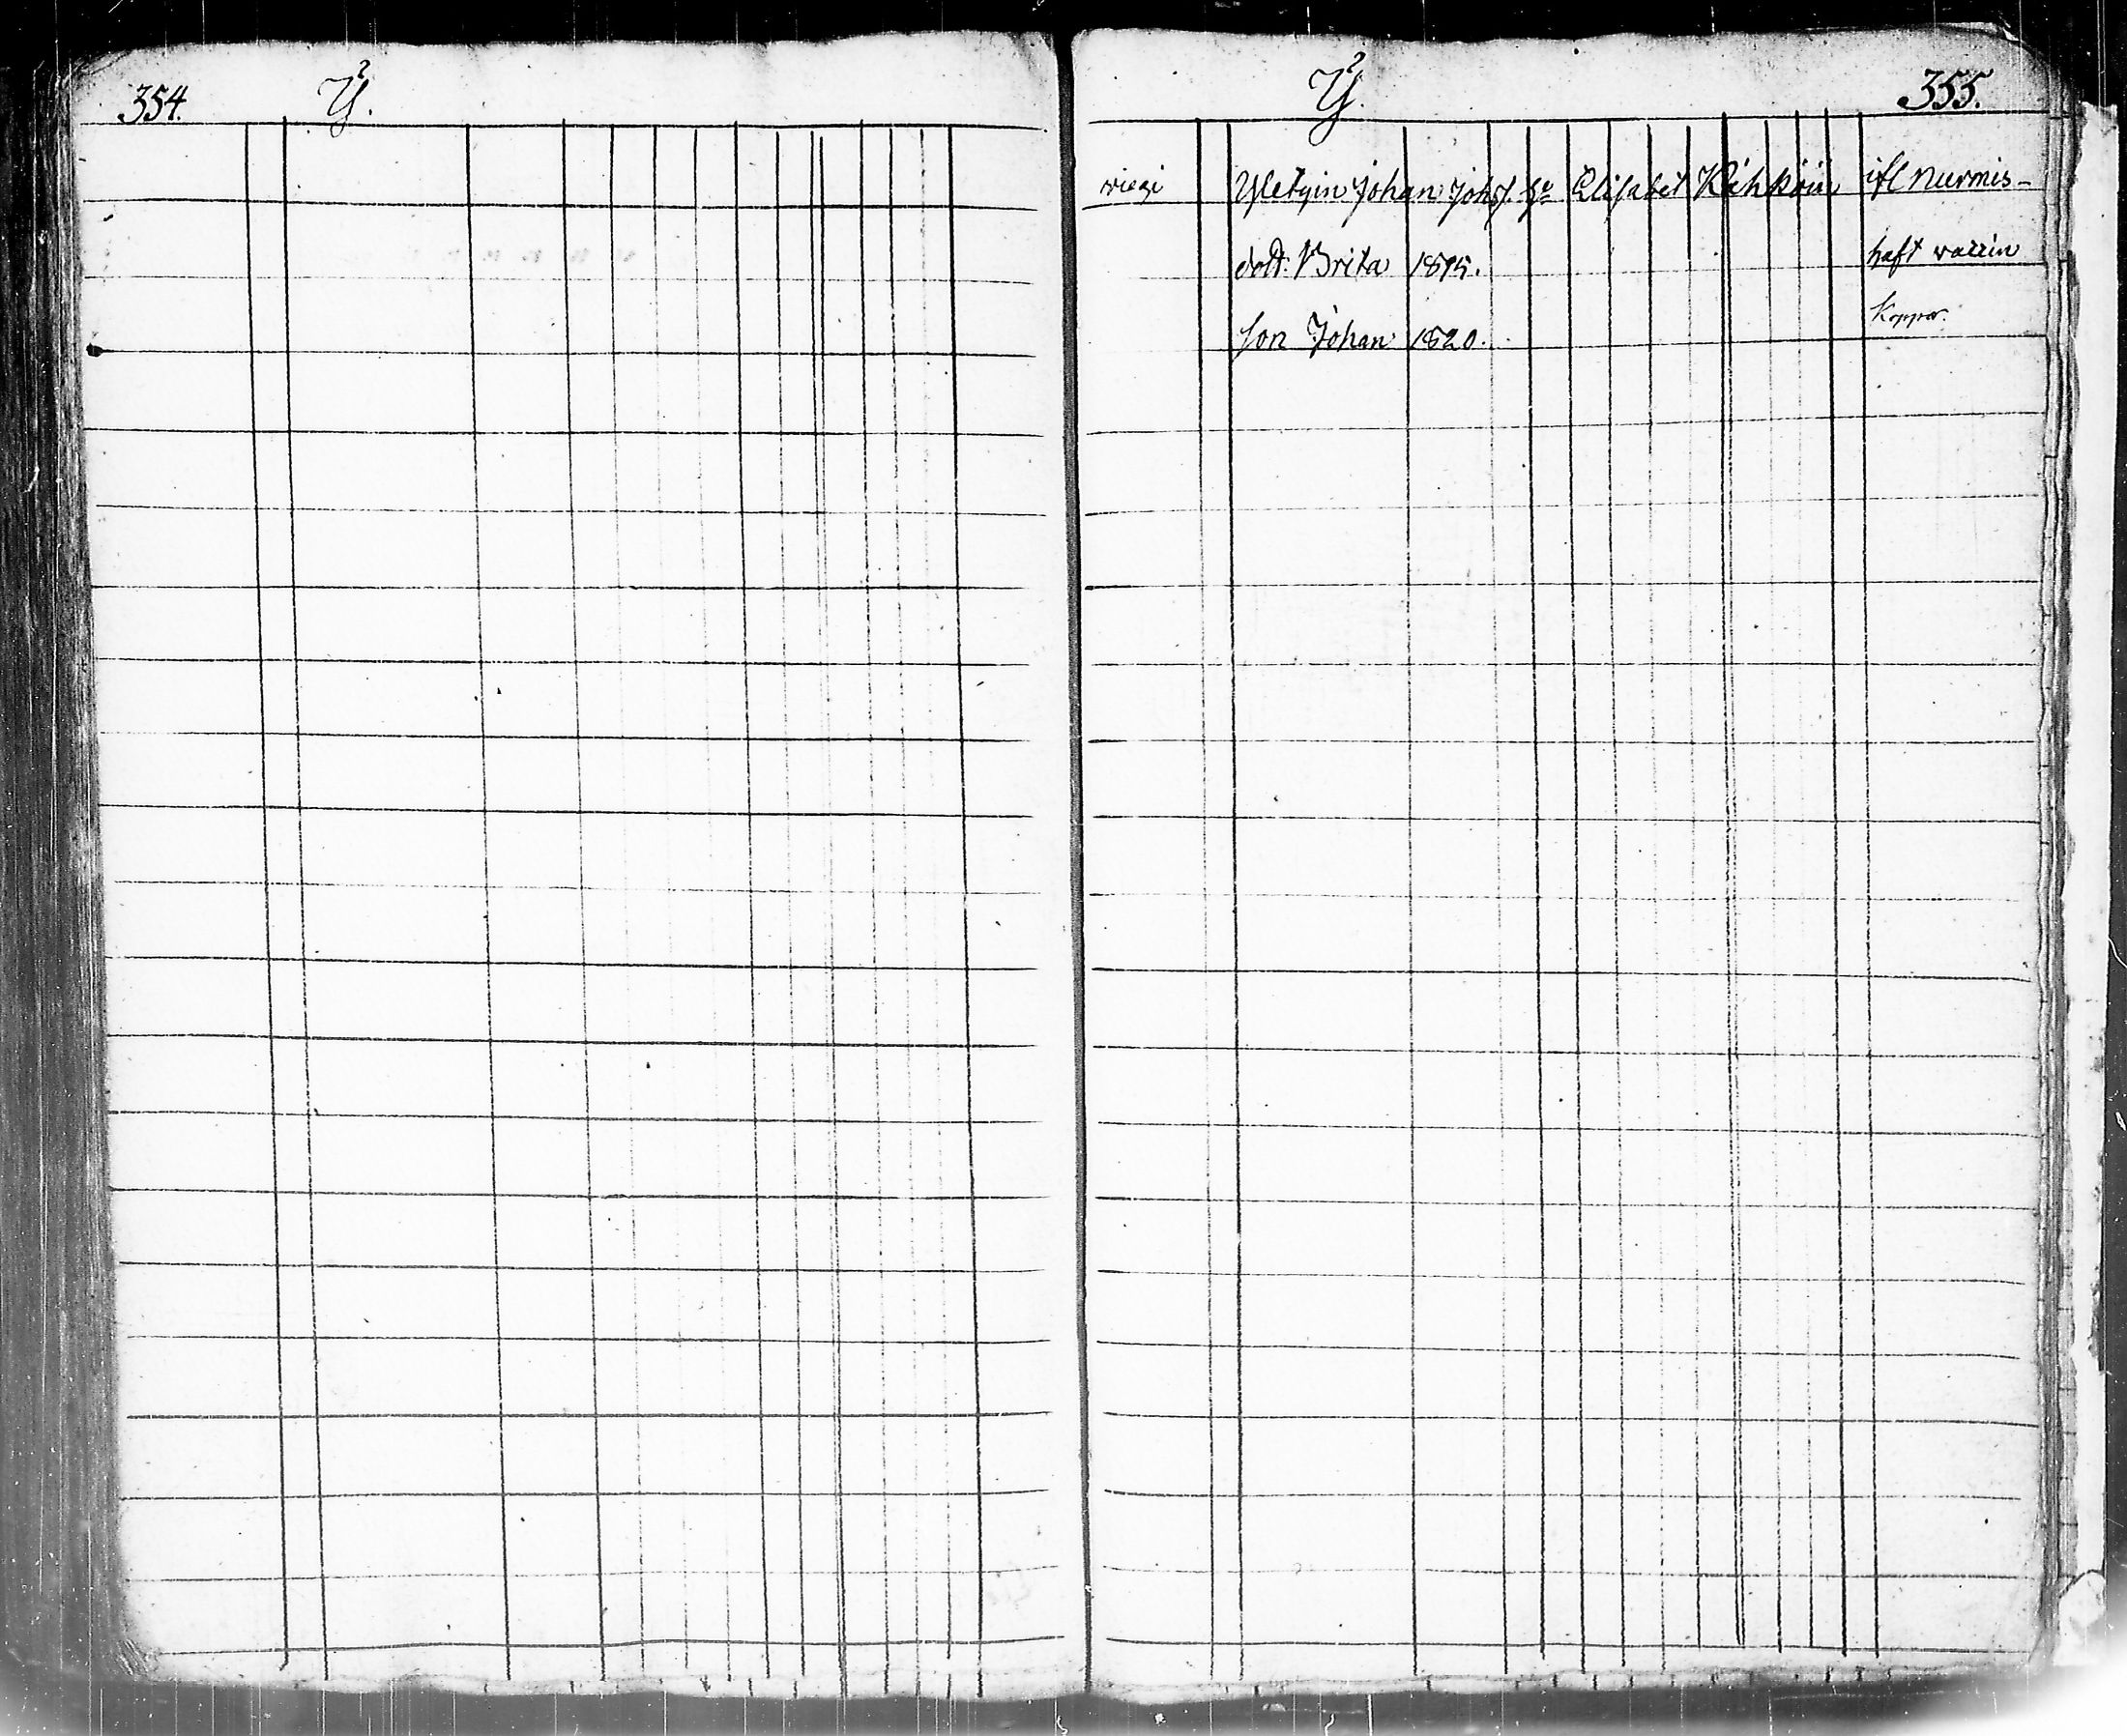 354. Y.
Y. 355.
Yletyin Johan Joh. J. h:o Elisabet Kähköin ifl Nurmis-
dott: Brita 1815. haft vaccin
son Johan 1820. Koppor.